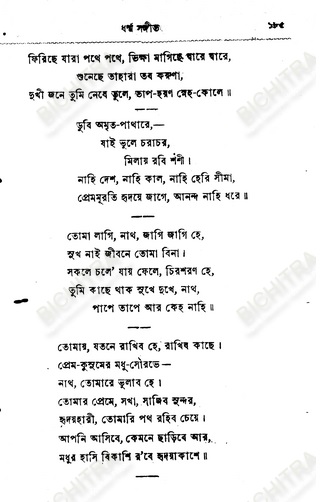 ধর্ম্ম সঙ্গীত
১৮৫
ফিরিছে যারা পথে পথে, ভিক্ষা মাগিছে দ্বারে দ্বারে,
শুনেছে তাহারা তব করুণা,
দুখী জনে তুমি নেবে তুলে, তাপ-হরণ স্নেহ-কোলে॥
ডুবি অমৃত-পাথারে,—
যাই ভুলে চরাচর,
মিলায় রবি শশী।
নাহি দেশ, নাহি কাল, নাহি হেরি সীমা,
প্রেমমূরতি হৃদয়ে জাগে, আনন্দ নাহি ধরে॥
তোমা লাগি, নাথ, জাগি জাগি হে,
সুখ নাই জীবনে তোমা বিনা।
সকলে চলে' যায় ফেলে, চিরশরণ হে,
তুমি কাছে থাক সুখে দুখে, নাথ,
পাপে তাপে আর কেহ নাহি॥
তোমায়, যতনে রাখিব হে, রাখিব কাছে।
প্রেম-কুসুমের মধু-সৌরভে—
নাথ, তোমারে ভুলাব হে।
তোমার প্রেমে, সখা, সাজিব সুন্দর,
হৃদয়হারী, তোমারি পথ রহিব চেয়ে।
আপনি আসিবে, কেমনে ছাড়িবে আর,
মধুর হাসি বিকাশি র'বে হৃদয়াকাশে॥
BICHITRA